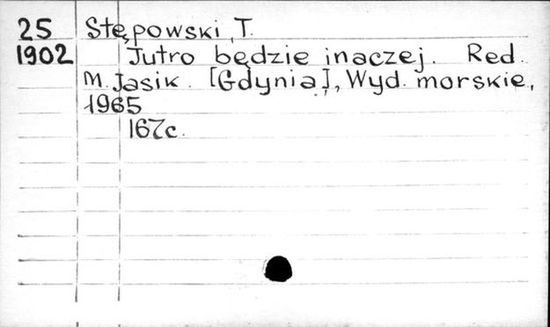 25 Stępowski, T.
1902 Jutro będzie inaczej. Red.
M. Jasik. [Gdynia], Wyd. morskie,
1965
167c.